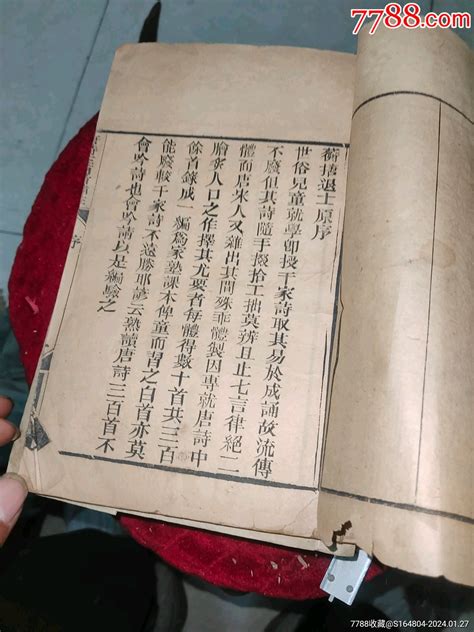 7788.com
蘅塘退士原序
世俗兒童就學卽授千家詩取其易於成誦故流傳
不廢但其詩隨手掇拾工拙莫辨且止七言律絕二
體而唐宋人又雜出其間殊乖體製因專就唐詩中
膾炙人口之作擇其尤要者每體得數十首共三百
餘首錄成一編爲家塾課本俾童而習之白首亦莫
能廢較千家詩不遠勝耶諺云熟讀唐詩三百首不
會吟詩也會吟請以是編驗之
序
7788收藏@S164804-2024.01.27